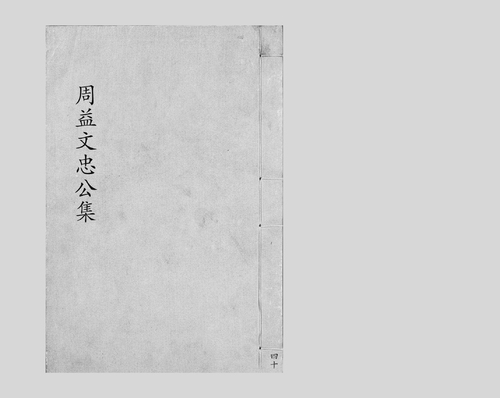 周益文忠公集
四十